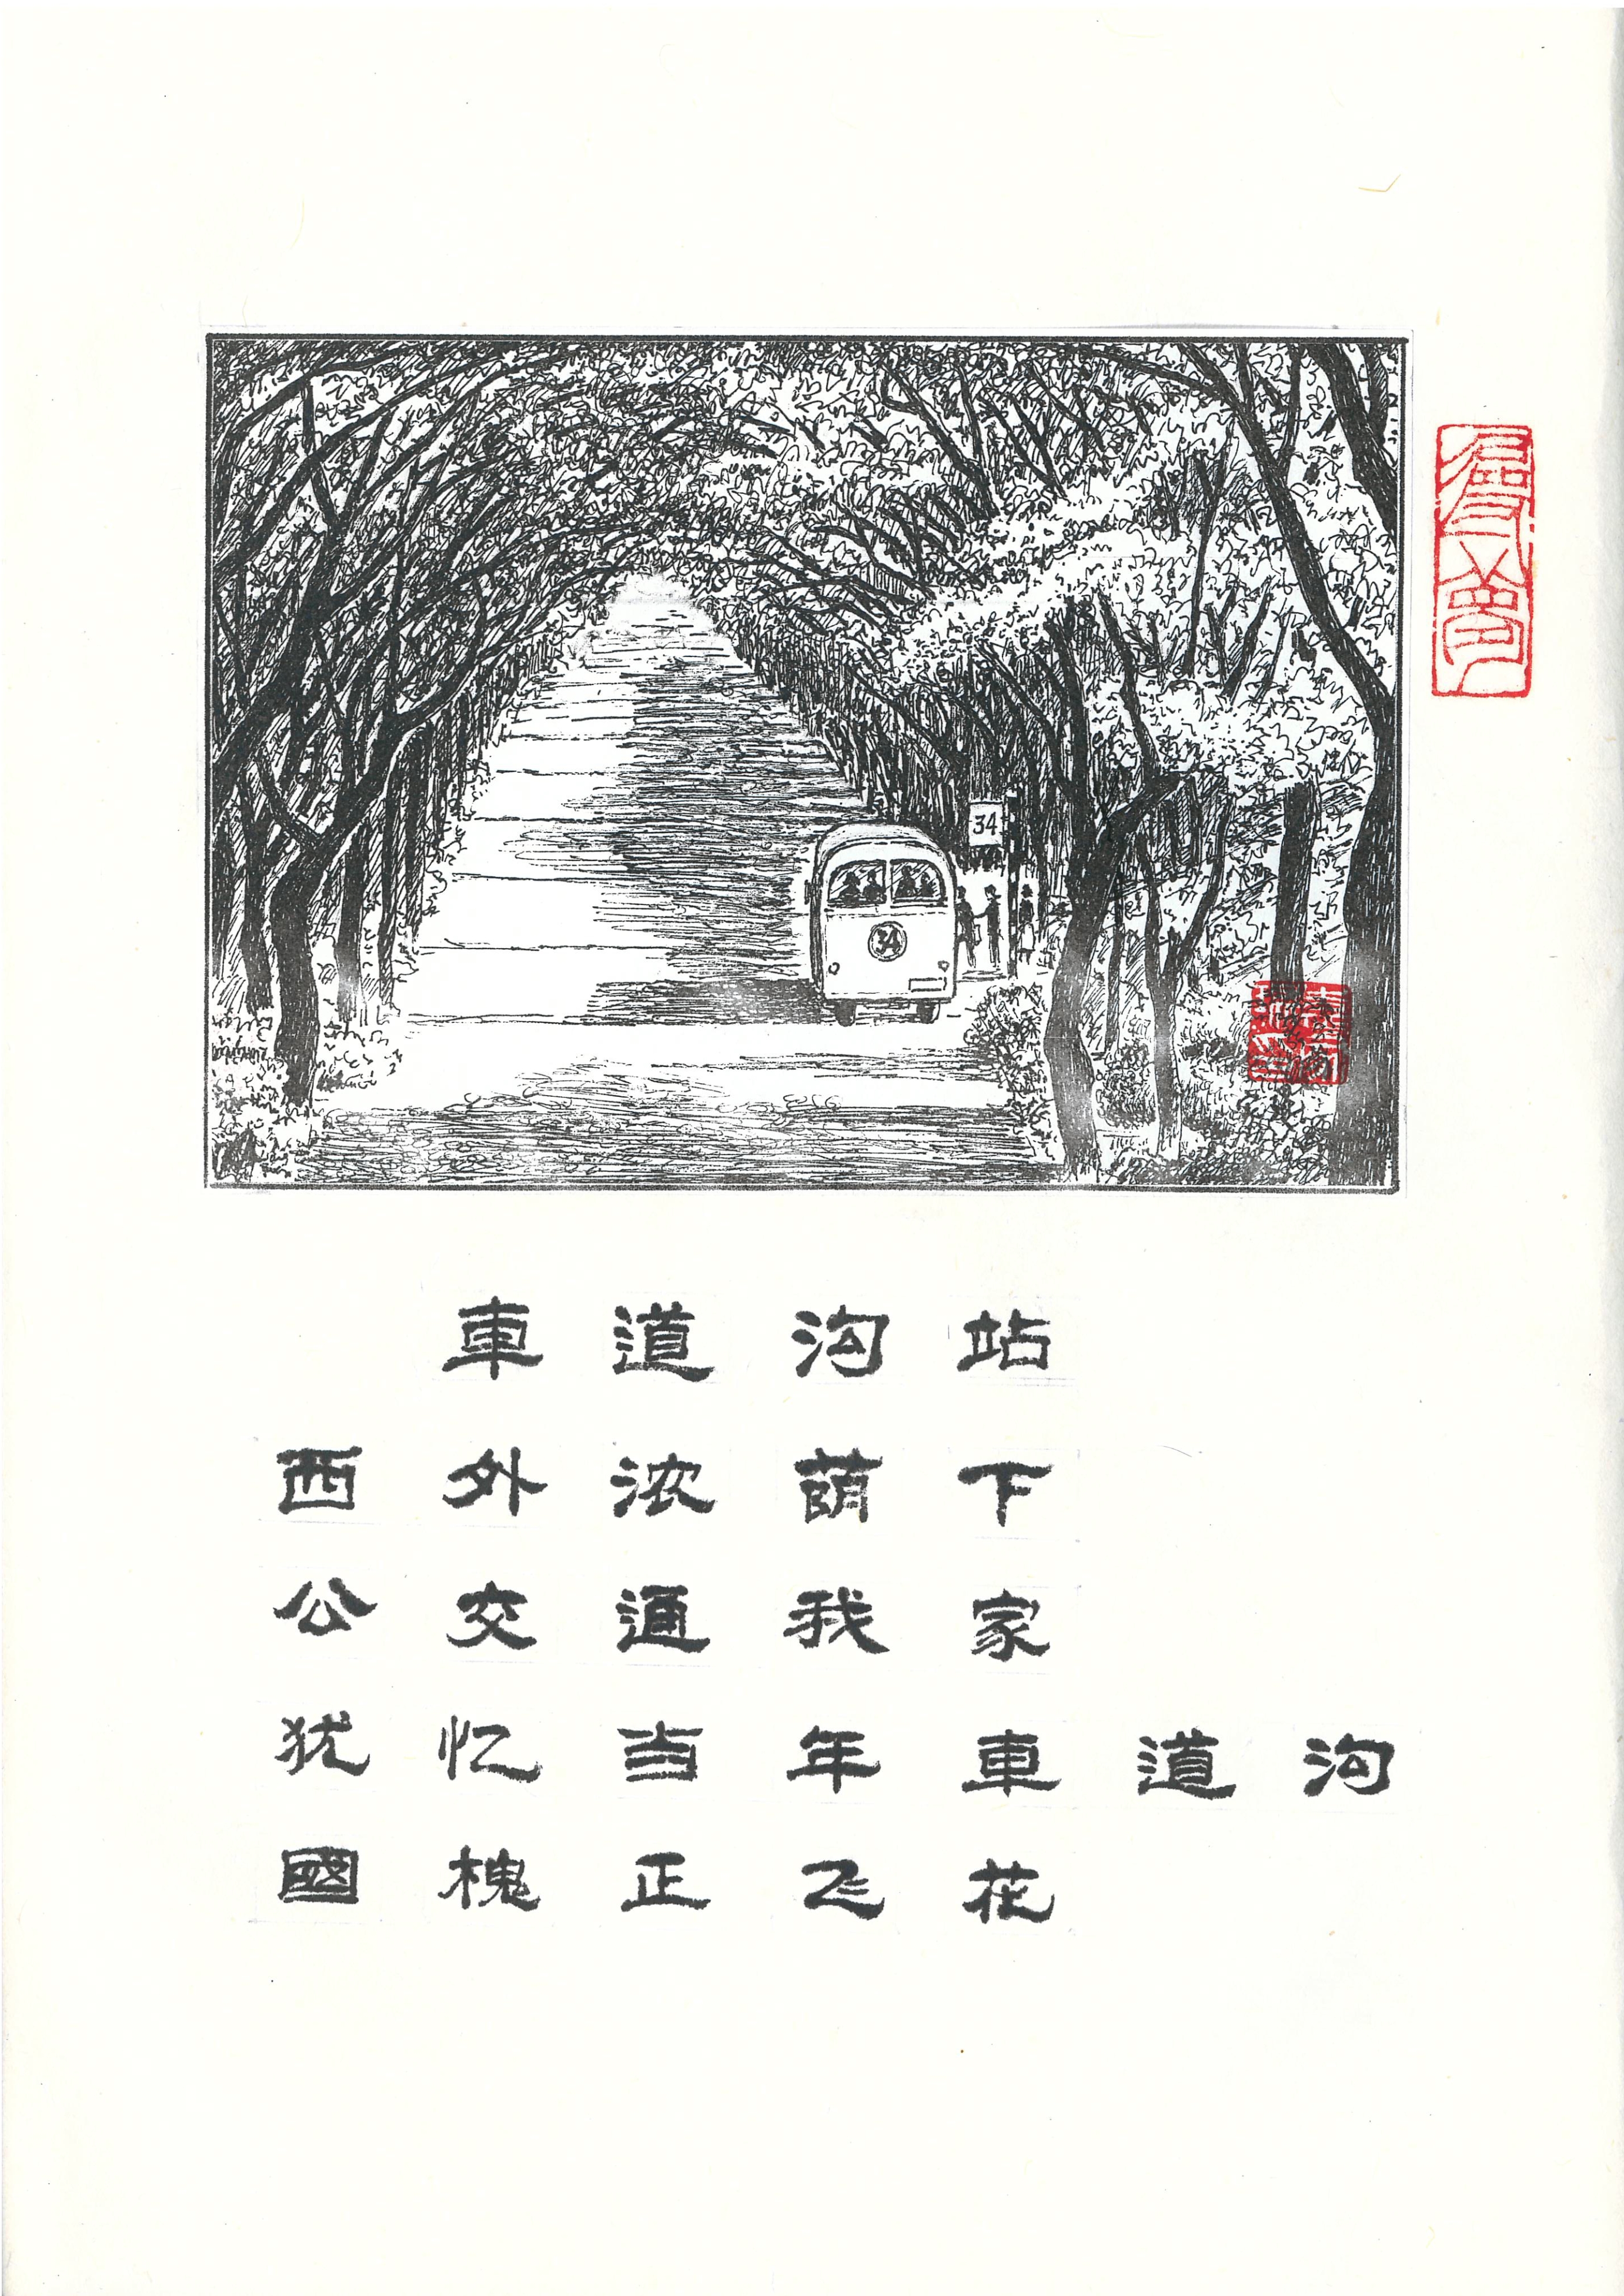 34
34
車道沟站
西外浓荫下
公交通我家
犹忆当年車道沟
國槐正飞花